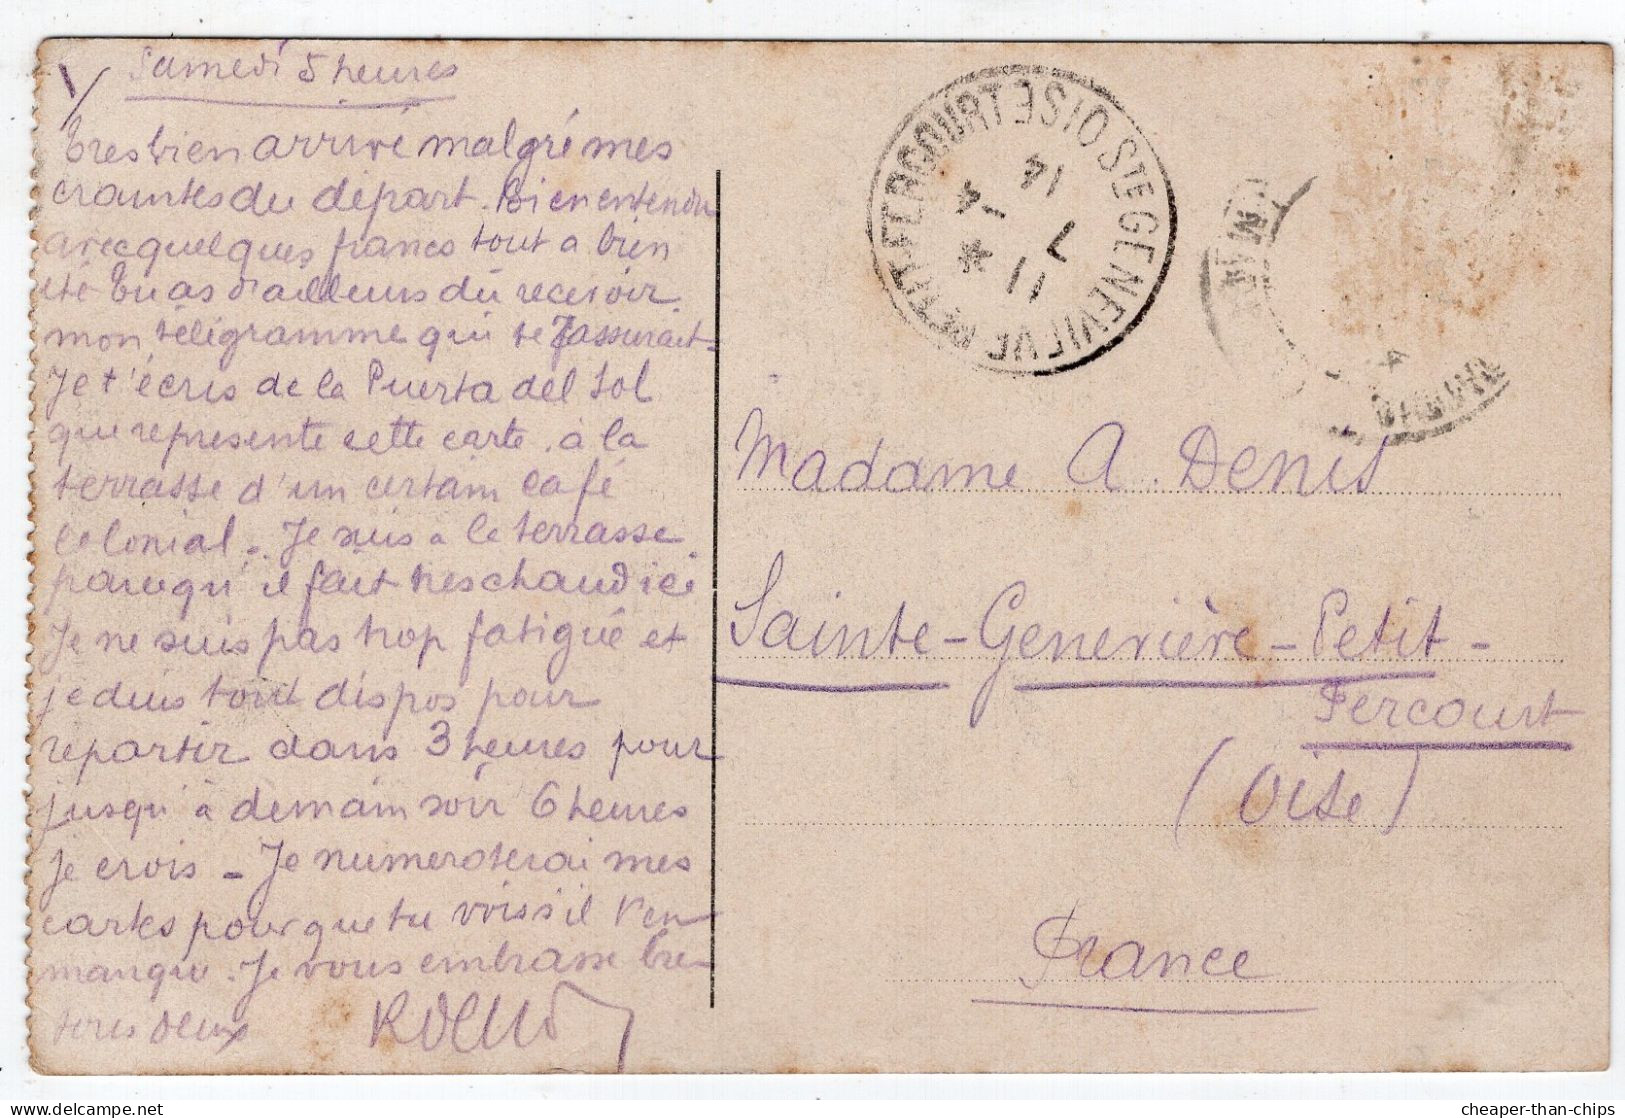 Samedi 5 heures
Tres bien arrivé malgré mes
craintes du départ. Bien entendu
avec quelques francs tout a bien
été Tu as d'ailleurs dû recevoir
mon télégramme qui te rassurait -
Je t'écris de la Puerta del Sol
que represente cette carte. à la
terrasse d'un certain café
colonial. Je suis a la terrasse
parcequ'il fait tres chaud ici
Je ne suis pas trop fatigué et
je suis tout dispos pour
repartir dans 3 heures pour
jusqu'à demain soir 6 heures
je crois - Je numeroterai mes
cartes pour que tu vois s'il t'en
manque. Je vous embrasse bien
tous deux
STE GENEVIEVE PETIT FERCOURT OISE
14
7 - 4
11 *
MADRID
Madame A. Denis
Sainte-Geneviève-Petit-
Fercourt
(Oise)
France
cheaper-than-chips
cheaper-than-chips.com